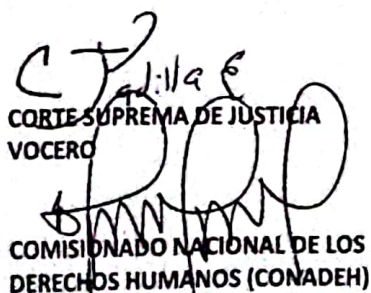 C Padilla E
CORTE SUPREMA DE JUSTICIA
VOCERO
COMISIONADO NACIONAL DE LOS
DERECHOS HUMANOS (CONADEH)